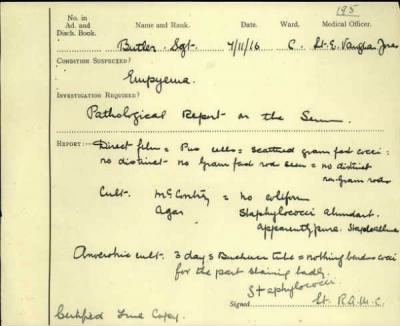 195
No. in Ad. and Disch. Book.
Name and Rank.
Date.
Ward.
Medical Officer.
Butler. Sgt.
7/11/16
C.
Lt. E. Vaughan
CONDITION SUSPECTED?
Empyema.
INVESTIGATION REQUIRED?
Pathological Report on the
REPORT:— Direct film = Pus cells = scattered gram fast cocci:
no distinct no Gram fast rod seen = no distinct
no Gram rods
Cult. = no coliform
Agar Staphylococci abundant.
apparently pure.
Anaerobic cult. 3 days Buchner tube = nothing but cocci
for the part staining badly.
Staphylococci
Signed Lt. R.A.M.C.
Certified True Copy.